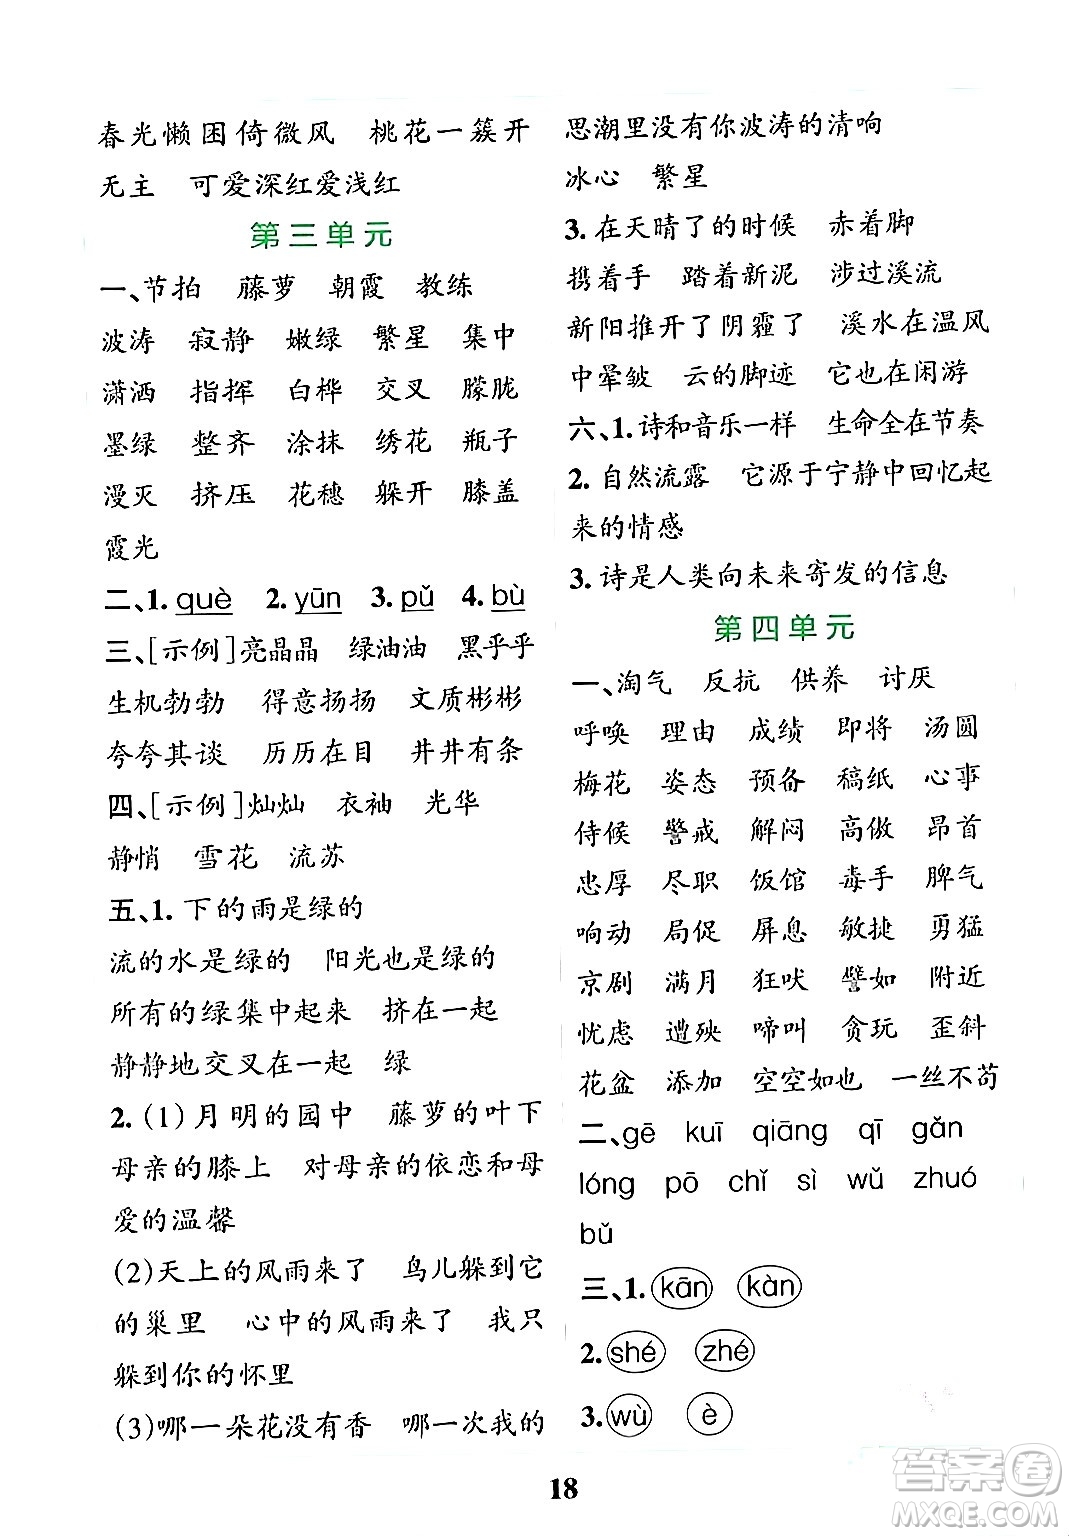 春光懒困倚微风 桃花一簇开
无主 可爱深红爱浅红
第三单元
一、节拍 藤萝 朝霞 教练
波涛 寂静 嫩绿 繁星 集中
潇洒 指挥 白桦 交叉 朦胧
墨绿 整齐 涂抹 绣花 瓶子
漫灭 挤压 花穗 躲开 膝盖
霞光
二、1. què 2. yūn 3. pǔ 4. bù
三、[示例]亮晶晶 绿油油 黑乎乎
生机勃勃 得意扬扬 文质彬彬
夸夸其谈 历历在目 井井有条
四、[示例]灿灿 衣袖 光华
静悄 雪花 流苏
五、1. 下的雨是绿的
流的水是绿的 阳光也是绿的
所有的绿集中起来 挤在一起
静静地交叉在一起 绿
2. (1)月明的园中 藤萝的叶下
母亲的膝上 对母亲的依恋和母
爱的温馨
(2)天上的风雨来了 鸟儿躲到它
的巢里 心中的风雨来了 我只
躲到你的怀里
(3)哪一朵花没有香 哪一次我的
思潮里没有你波涛的清响
冰心 繁星
3. 在天晴了的时候 赤着脚
携着手 踏着新泥 涉过溪流
新阳推开了阴霾了 溪水在温风
中晕皱 云的脚迹 它也在闲游
六、1. 诗和音乐一样 生命全在节奏
2. 自然流露 它源于宁静中回忆起
来的情感
3. 诗是人类向未来寄发的信息
第四单元
一、淘气 反抗 供养 讨厌
呼唤 理由 成绩 即将 汤圆
梅花 姿态 预备 稿纸 心事
侍候 警戒 解闷 高傲 昂首
忠厚 尽职 饭馆 毒手 脾气
响动 局促 屏息 敏捷 勇猛
京剧 满月 狂吠 譬如 附近
忧虑 遭殃 啼叫 贪玩 歪斜
花盆 添加 空空如也 一丝不苟
二、gē kuī qiāng qī gǎn
lóng pō chǐ sì wǔ zhuó
bǔ
三、1. kān kàn
2. shé zhé
3. wù è
18
答案圈
MXQE.COM